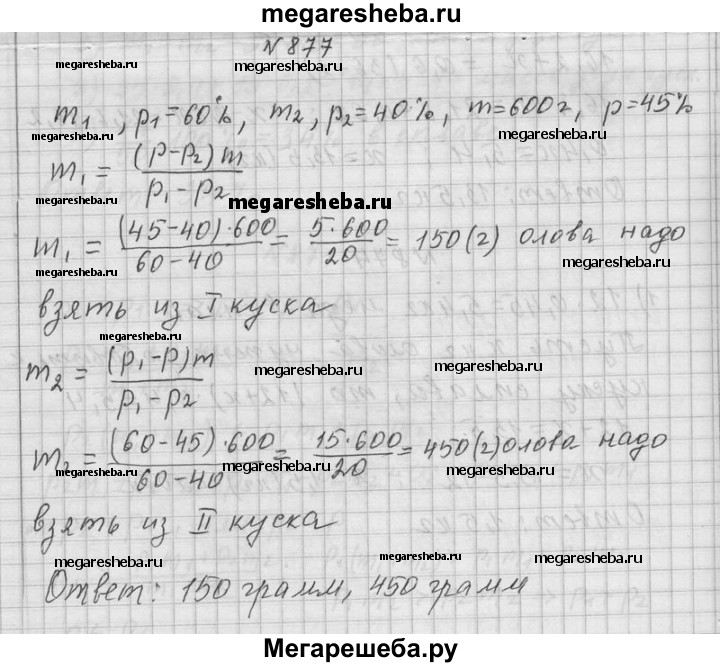 megaresheba.ru
N 877
megaresheba.ru megaresheba.ru
m₁, p₁=60%, m₂, p₂=40%, m=600г, p=45%
megaresheba.ru megaresheba.ru
m₁ = (p-p₂)m / p₁-p₂
megaresheba.ru megaresheba.ru
m₁ = (45-40)·600 / 60-40 = 5·600 / 20 = 150(г) олова надо
megaresheba.ru megaresheba.ru megaresheba.ru
взять из I куска
megaresheba.ru megaresheba.ru
m₂ = (p₁-p)m / p₁-p₂
megaresheba.ru megaresheba.ru
m₂ = (60-45)·600 / 60-40 = 15·600 / 20 = 450(г) олова надо
megaresheba.ru megaresheba.ru megaresheba.ru
взять из II куска
megaresheba.ru megaresheba.ru megaresheba.ru
Ответ: 150 грамм, 450 грамм
Мегарешеба.ру